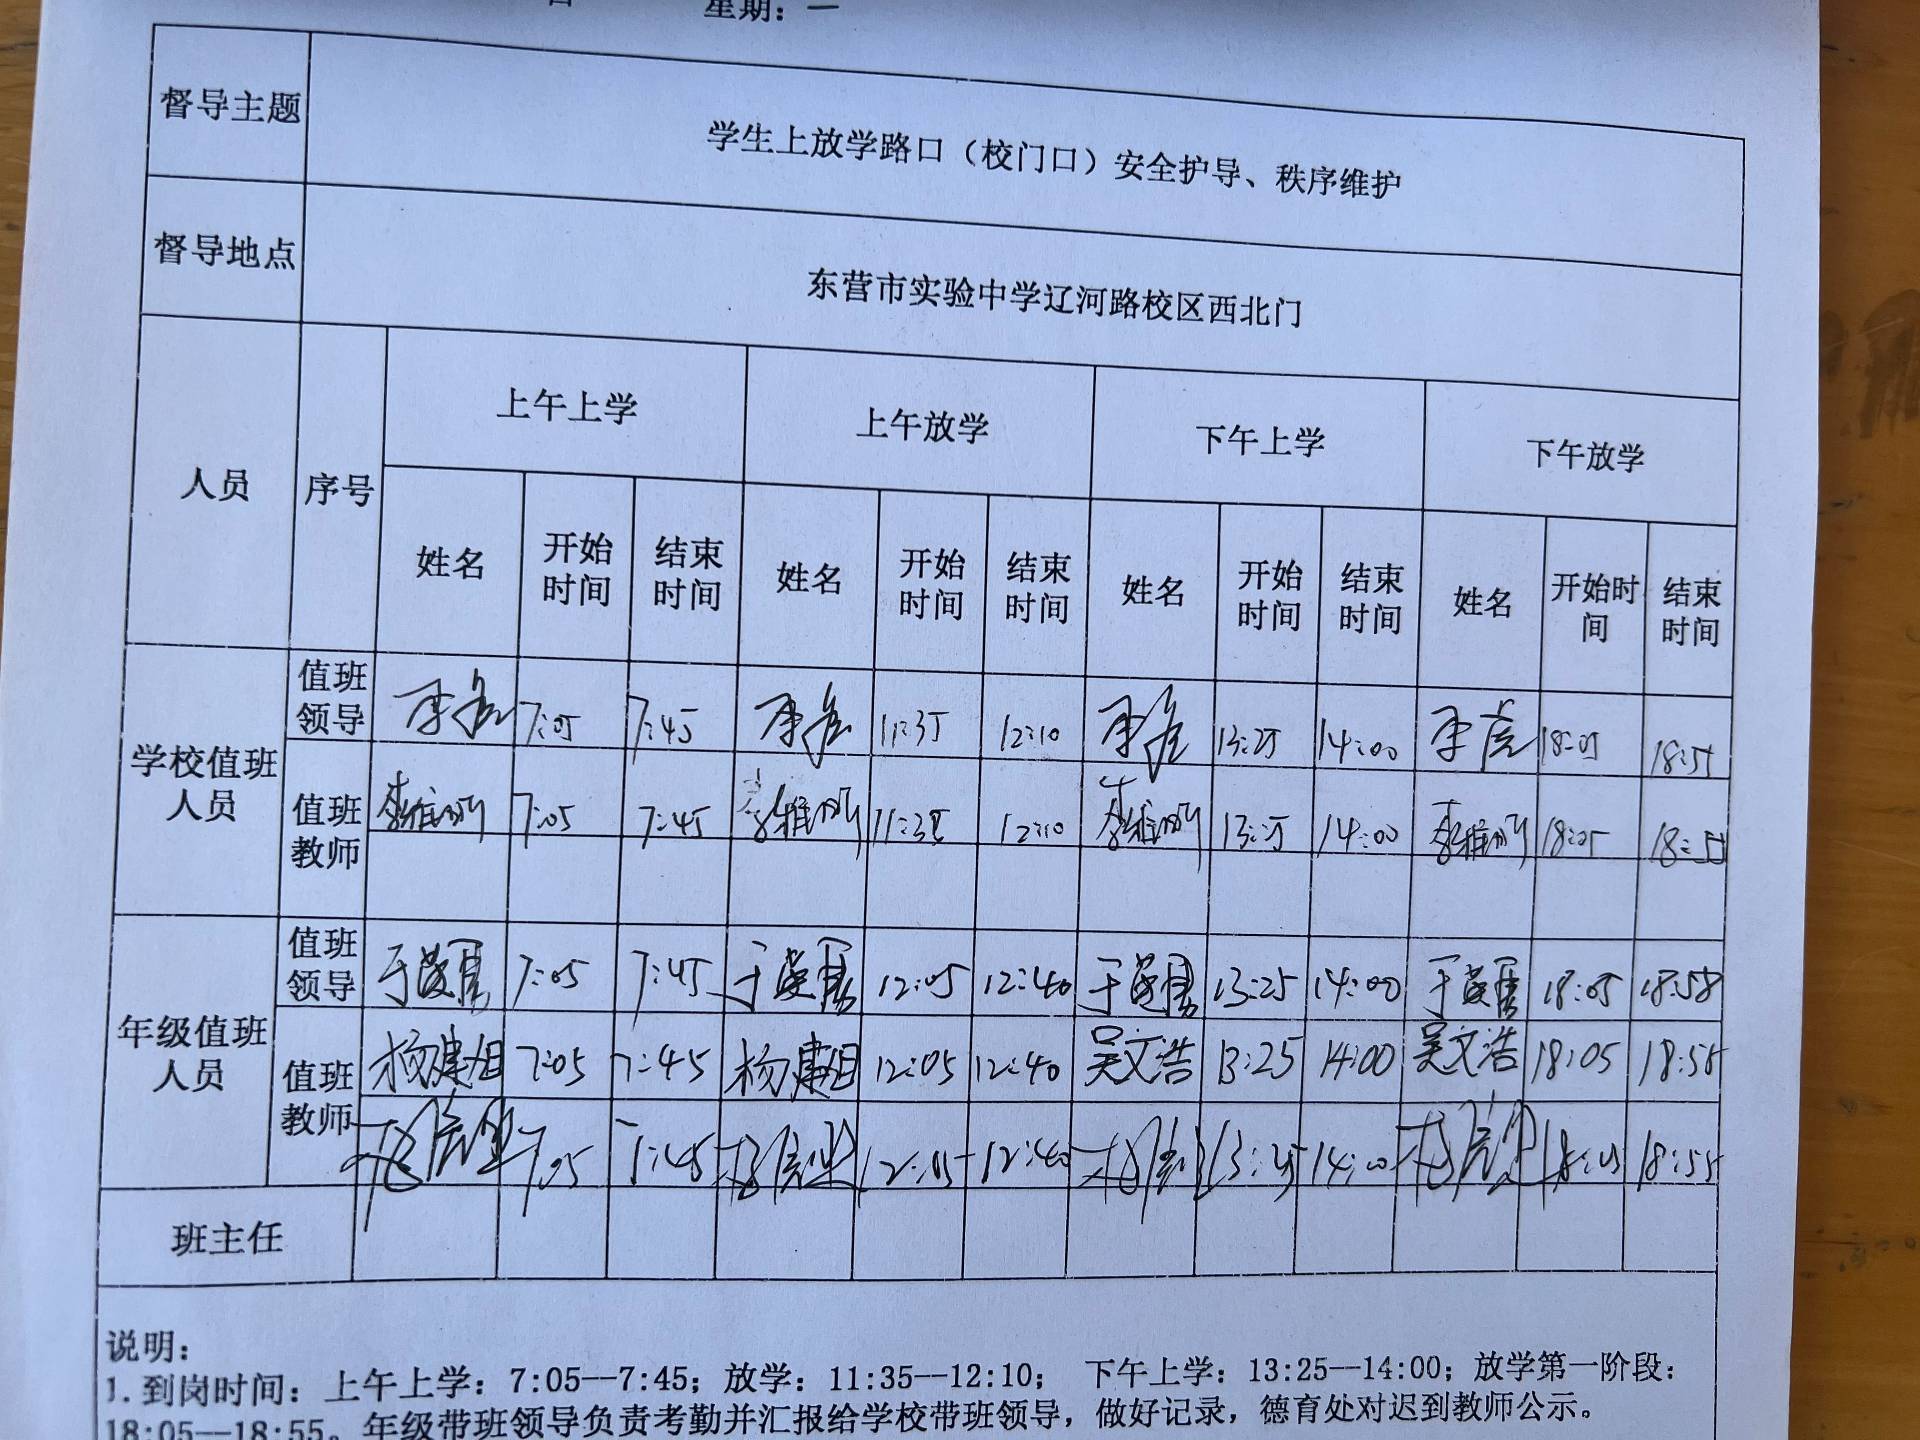 星期：一
督导主题 学生上放学路口（校门口）安全护导、秩序维护
督导地点 东营市实验中学辽河路校区西北门
人员 序号 上午上学 上午放学 下午上学 下午放学
姓名 开始时间 结束时间 姓名 开始时间 结束时间 姓名 开始时间 结束时间 姓名 开始时间 结束时间
学校值班人员
值班领导 7:05 7:45 11:35 12:10 13:25 14:00 18:05 18:55
值班教师 7:05 7:45 11:35 12:10 13:25 14:00 18:05 18:55
年级值班人员
值班领导 7:05 7:45 12:05 12:40 13:25 14:00 18:05 18:58
值班教师 杨建旭 7:05 7:45 杨建旭 12:05 12:40 吴文浩 13:25 14:00 吴文浩 18:05 18:55
7:05 7:45 12:05 12:40 13:25 14:00 18:05 18:55
班主任
说明：
1.到岗时间：上午上学：7:05--7:45；放学：11:35--12:10； 下午上学：13:25--14:00；放学第一阶段：
18:05--18:55。年级带班领导负责考勤并汇报给学校带班领导，做好记录，德育处对迟到教师公示。